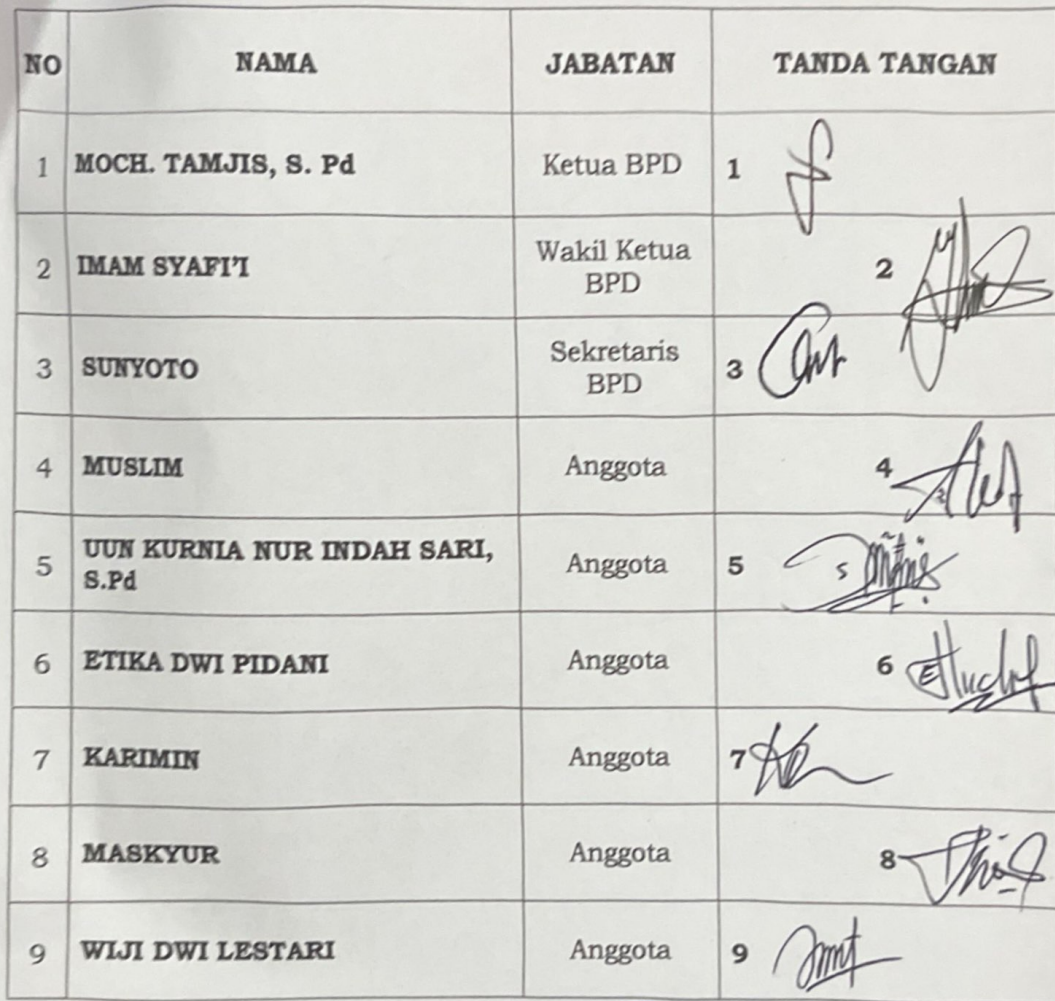 NO NAMA JABATAN TANDA TANGAN
1 MOCH. TAMJIS, S. Pd Ketua BPD 1
2 IMAM SYAFI'I Wakil Ketua BPD 2
3 SUNYOTO Sekretaris BPD 3
4 MUSLIM Anggota 4
5 UUN KURNIA NUR INDAH SARI, S.Pd Anggota 5
6 ETIKA DWI PIDANI Anggota 6
7 KARIMIN Anggota 7
8 MASKYUR Anggota 8
9 WIJI DWI LESTARI Anggota 9